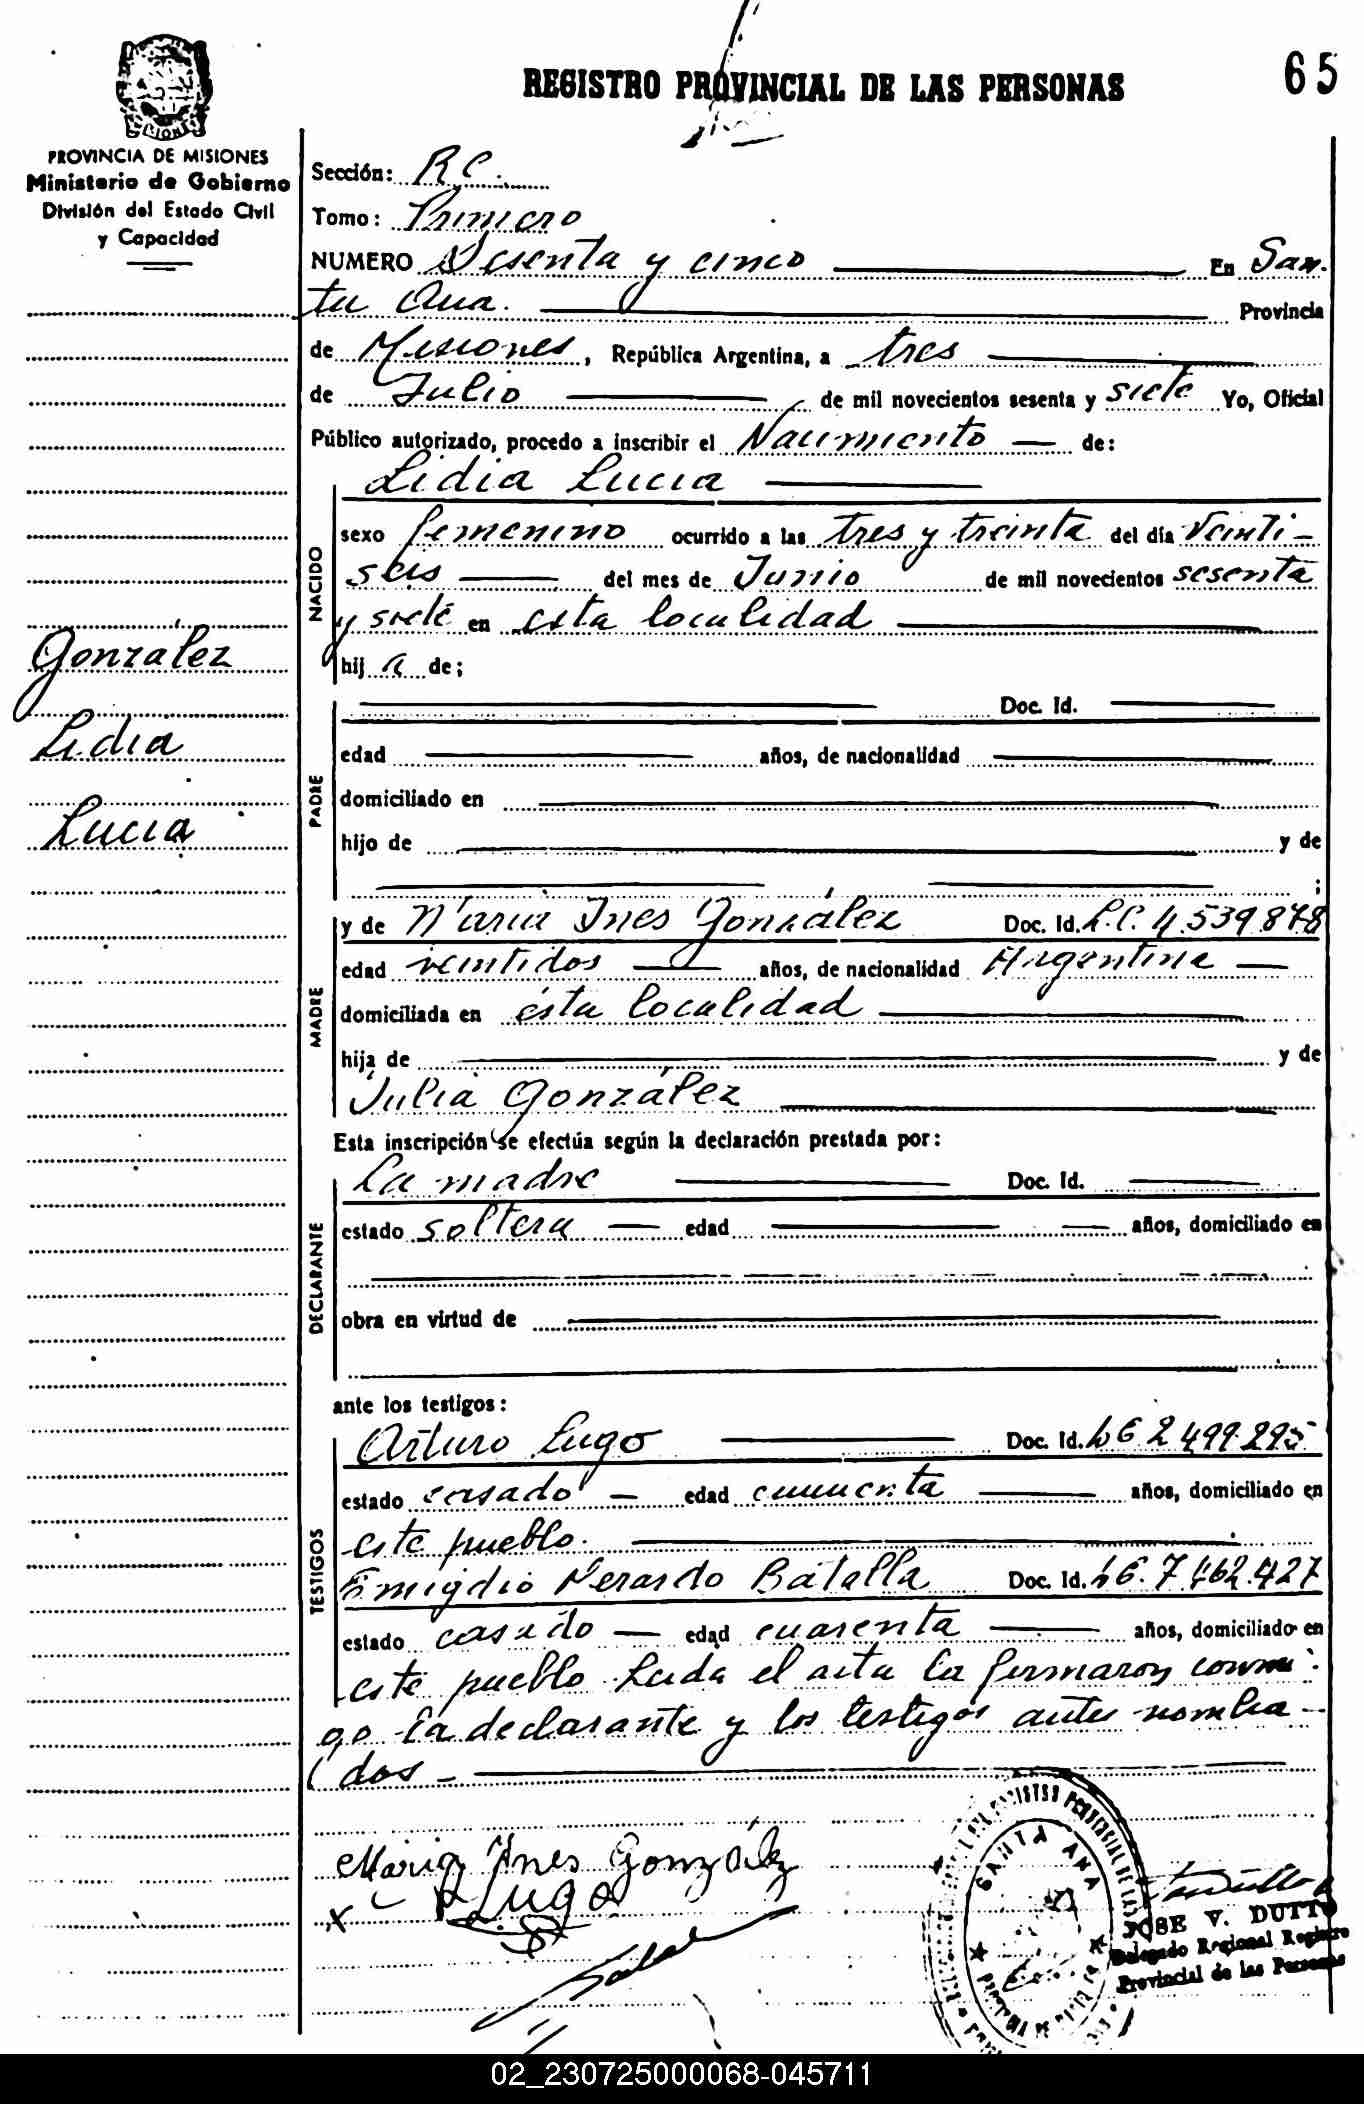 REGISTRO PROVINCIAL DE LAS PERSONAS
65
PROVINCIA DE MISIONES
Ministerio de Gobierno
División del Estado Civil
y Capacidad
Sección: R C.
Tomo: Primero
NUMERO Sesenta y cinco En San-
ta Ana. Provincia
de Misiones, República Argentina, a tres
de Julio de mil novecientos sesenta y siete Yo, Oficial
Público autorizado, procedo a inscribir el Nacimiento de:
Lidia Lucia
NACIDO
sexo femenino ocurrido a las tres y treinta del día Veinti-
seis del mes de Junio de mil novecientos sesenta
y siete en esta localidad
hij a de;
González
Lidia
Lucia
PADRE
Doc. Id.
edad años, de nacionalidad
domiciliado en
hijo de y de
;
MADRE
y de Maria Ines González Doc. Id. L.C. 4.539.878
edad veintidos años, de nacionalidad Argentina
domiciliada en ésta localidad
hija de y de
Julia González
Esta inscripción se efectúa según la declaración prestada por:
DECLARANTE
La madre Doc. Id.
estado soltera edad años, domiciliado en
obra en virtud de
ante los testigos:
TESTIGOS
Arturo Lugo Doc. Id. LE 2.499.295
estado casado edad cincuenta años, domiciliado en
este pueblo.
Emigdio Gerardo Batalla Doc. Id. LE. 7.462.427
estado casado edad cuarenta años, domiciliado en
este pueblo Leida el acta la firmaron conmi-
go la declarante y los testigos antes nombra-
dos -
Maria Ines González
x Lugo
SANTA ANA
JOSE V. DUTTO
Delegado Regional Registro
Provincial de las Personas
02_230725000068-045711